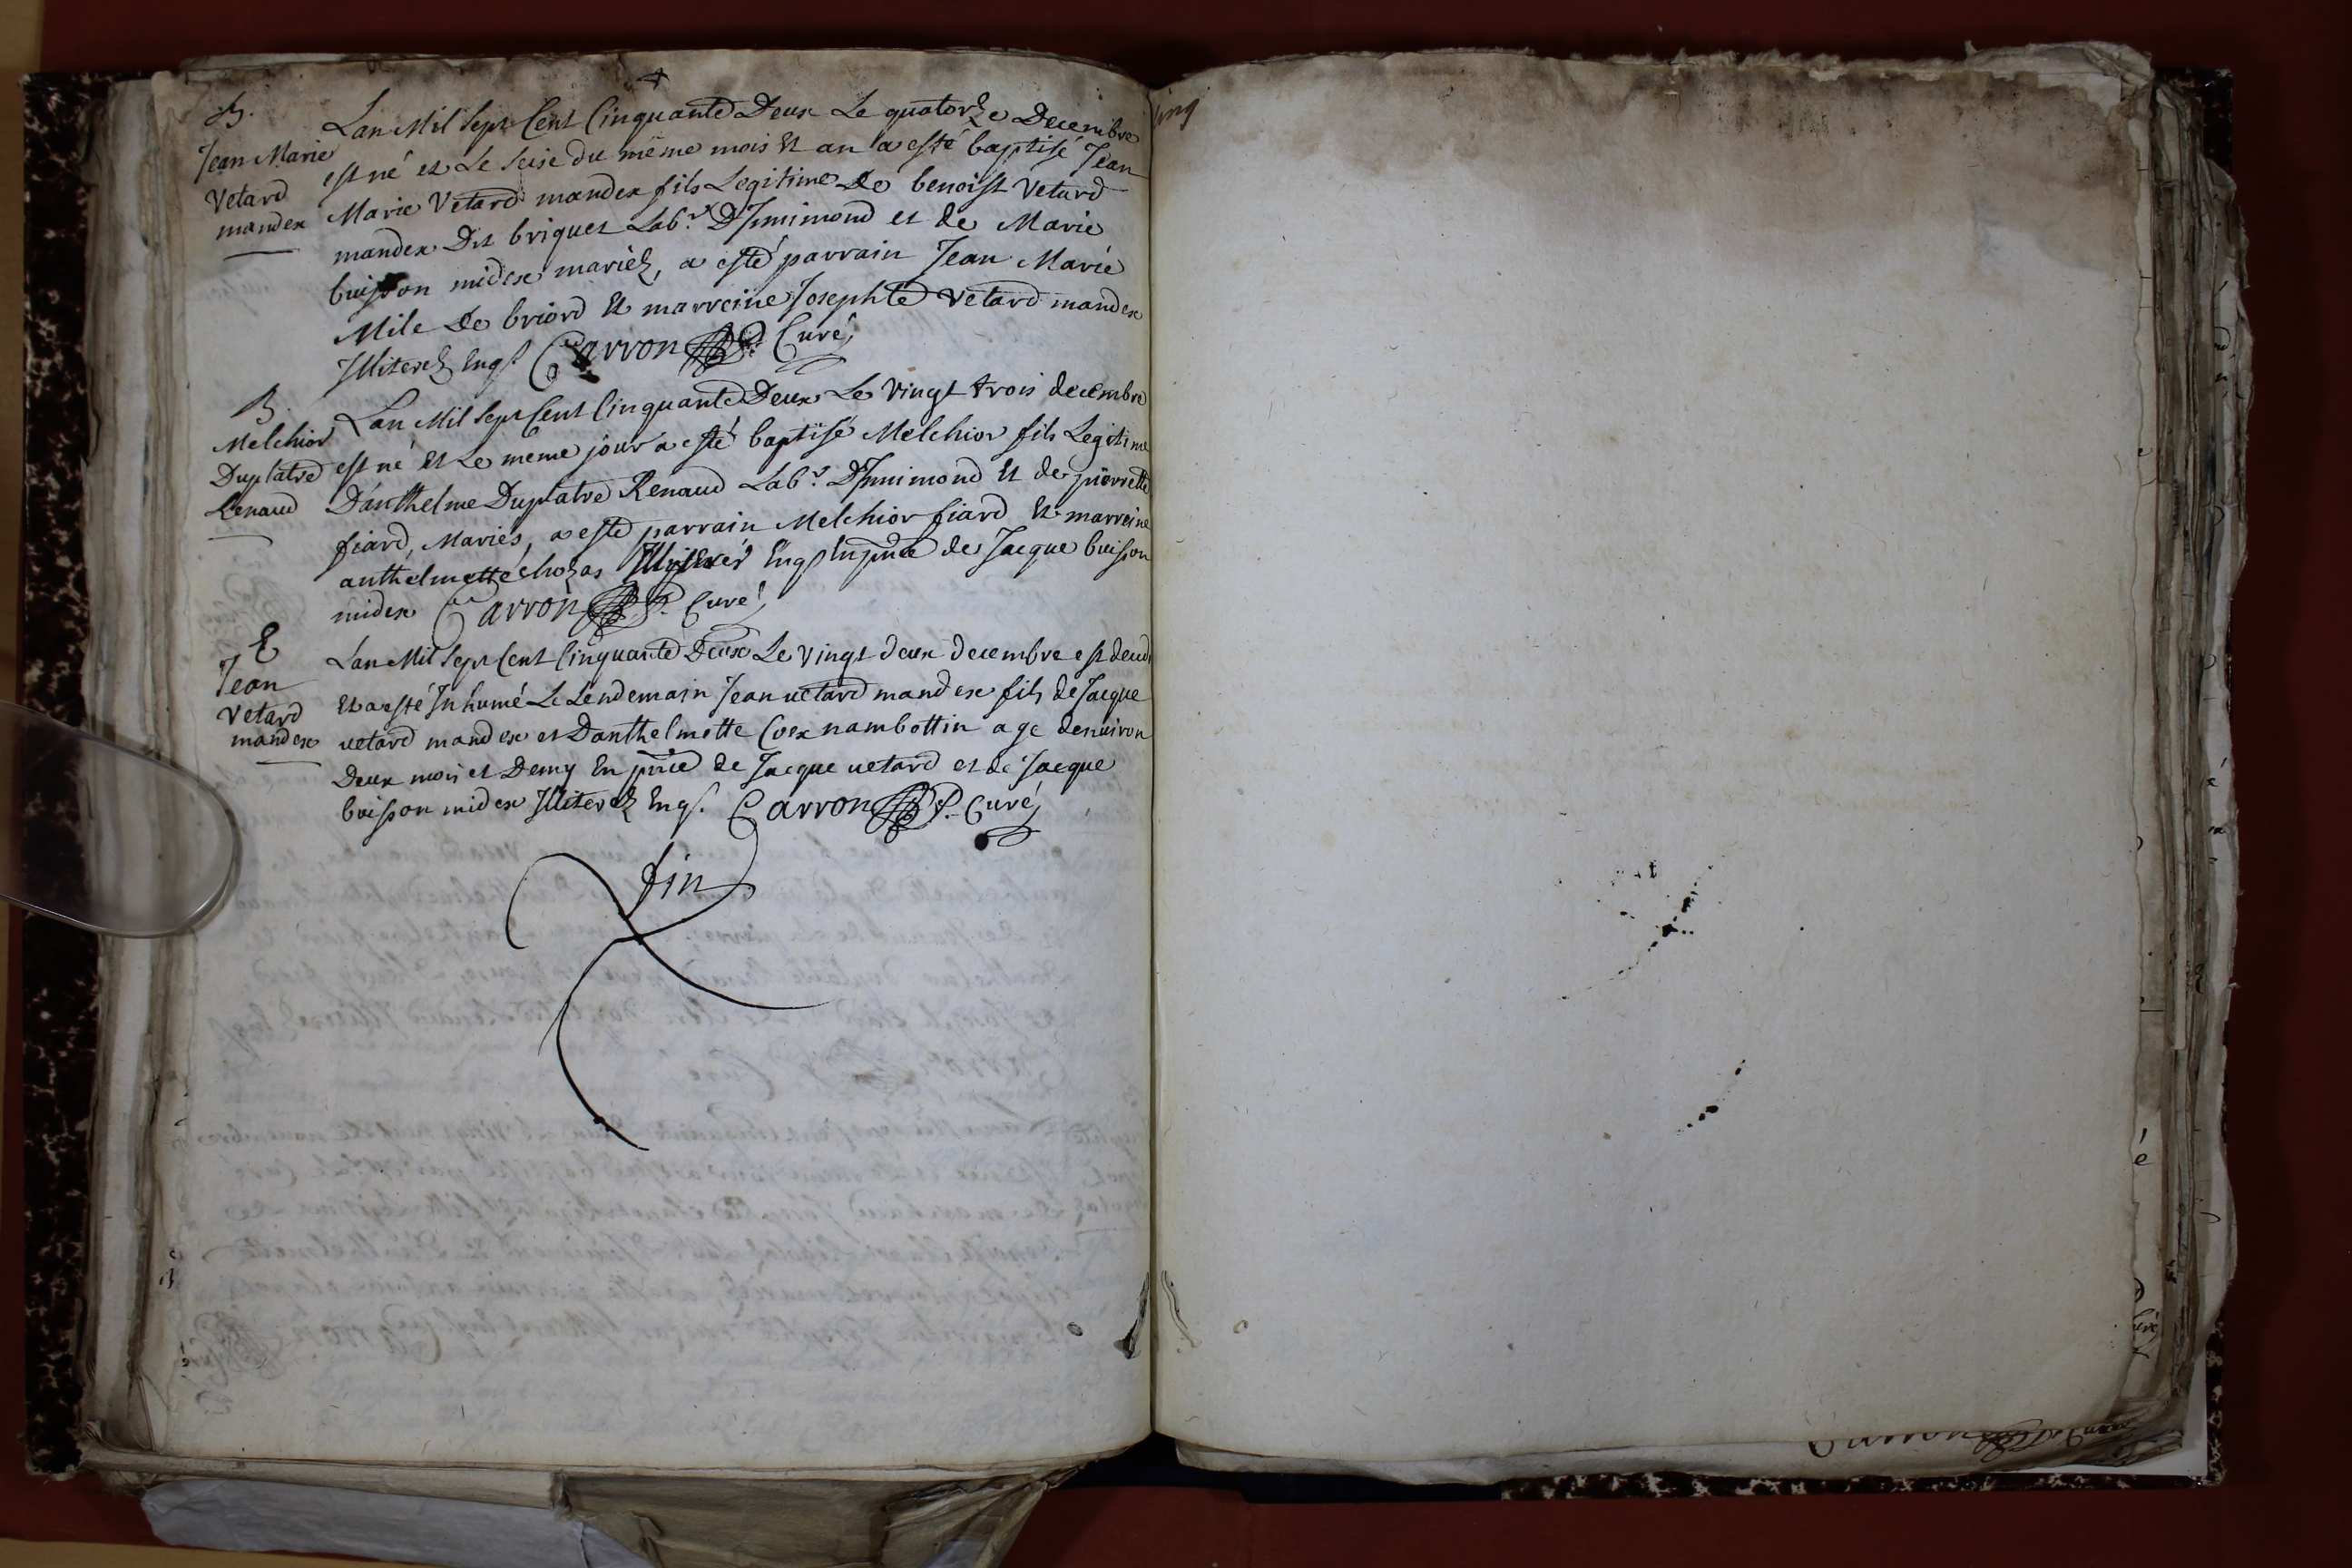 B.
Jean Marie
Vetard
mandex
Lan Mil Sept Cent Cinquante Deux Le quatorze Decembre
est né et Le seise du même mois Et an a esté baptisé Jean
Marie Vetard mandex fils Legitime De benoist Vetard
mandex Dit briquet Lab.r DJnnimond et de Marie
buisson midex mariéz, a esté parrain Jean Marie
Mile De briord Et marreine Josephte Vetard mandex
Jlliterez Enqs Carron P. Curé
B.
Melchior
Duplatre
Renaud
Lan Mil Sept Cent Cinquante Deux Le Vingt trois decembre
est né Et Le meme jour a esté baptisé Melchior fils Legitime
D'anthelme Duplatre Renaud Lab.r DJnnimond Et de pierrette
fiard, Mariés, a esté parrain Melchior fiard Et marreine
anthelmette chozas Enqs En pnce de Jacque buisson
midex Carron P. Curé
E
Jean
Vetard
mandex
Lan Mil Sept Cent Cinquante Deux Le Vingt deux decembre est decedé
Et a esté Jnhumé Le Lendemain Jean uetard mandex fils de Jacque
uetard mandex et Danthelmette Coex nambottin age denuiron
Deux mois et Demy En pnce de Jacque uetard et de Jacque
buisson midex Jlliterez Enqs. Carron P. Curé
fin